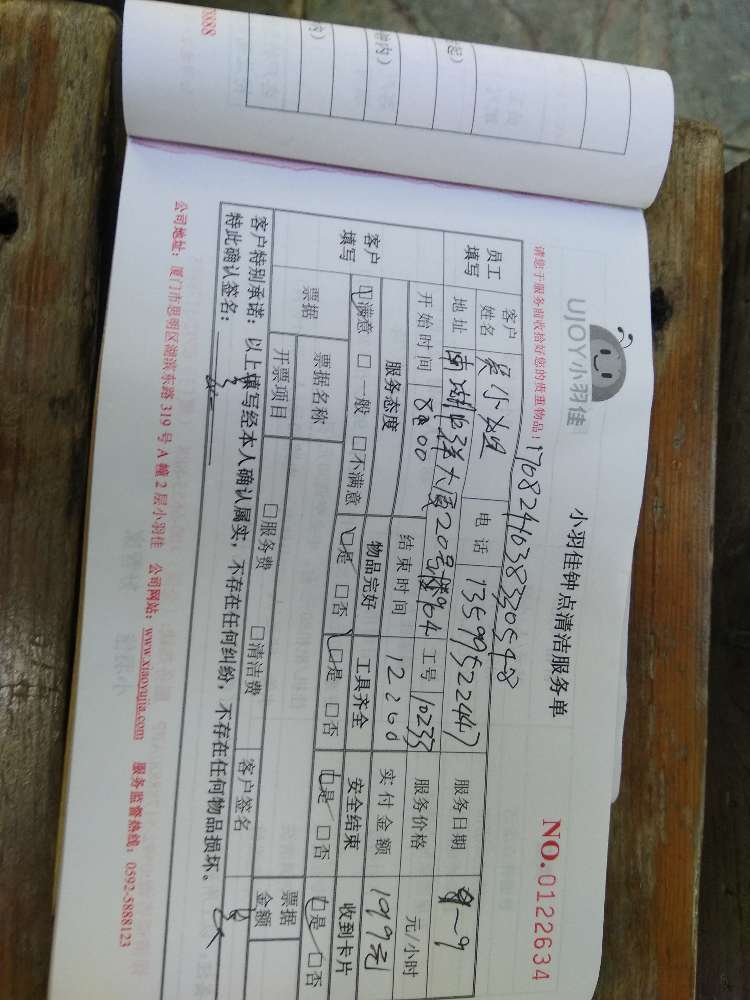 8888
起)
钟内)
内)
UJOY小羽佳
小羽佳钟点清洁服务单
NO.0122634
请您于服务前收拾好您的贵重物品！
17082411038330548
员工填写
客户姓名 吴小姐 电话 13599522447 服务日期 9-9
地址 南湖中祥大厦20号楼904 工号 10233 服务价格 元/小时
开始时间 8:00 结束时间 12:00 实付金额 199元
客户填写
服务态度 物品完好 工具齐全 安全结束 收到卡片
☑满意 □一般 □不满意 ☑是 □否 ☑是 □否 ☑是 □否 ☑是 □否
票据 票据名称 □服务费 □清洁费 客户签名 票据金额
开票项目
客户特别承诺：以上填写经本人确认属实，不存在任何纠纷，不存在任何物品损坏。
特此确认签名：
公司地址：厦门市思明区湖滨东路319号A幢2层小羽佳 公司网站：www.xiaoyujia.com 服务监督热线：0592-5888123